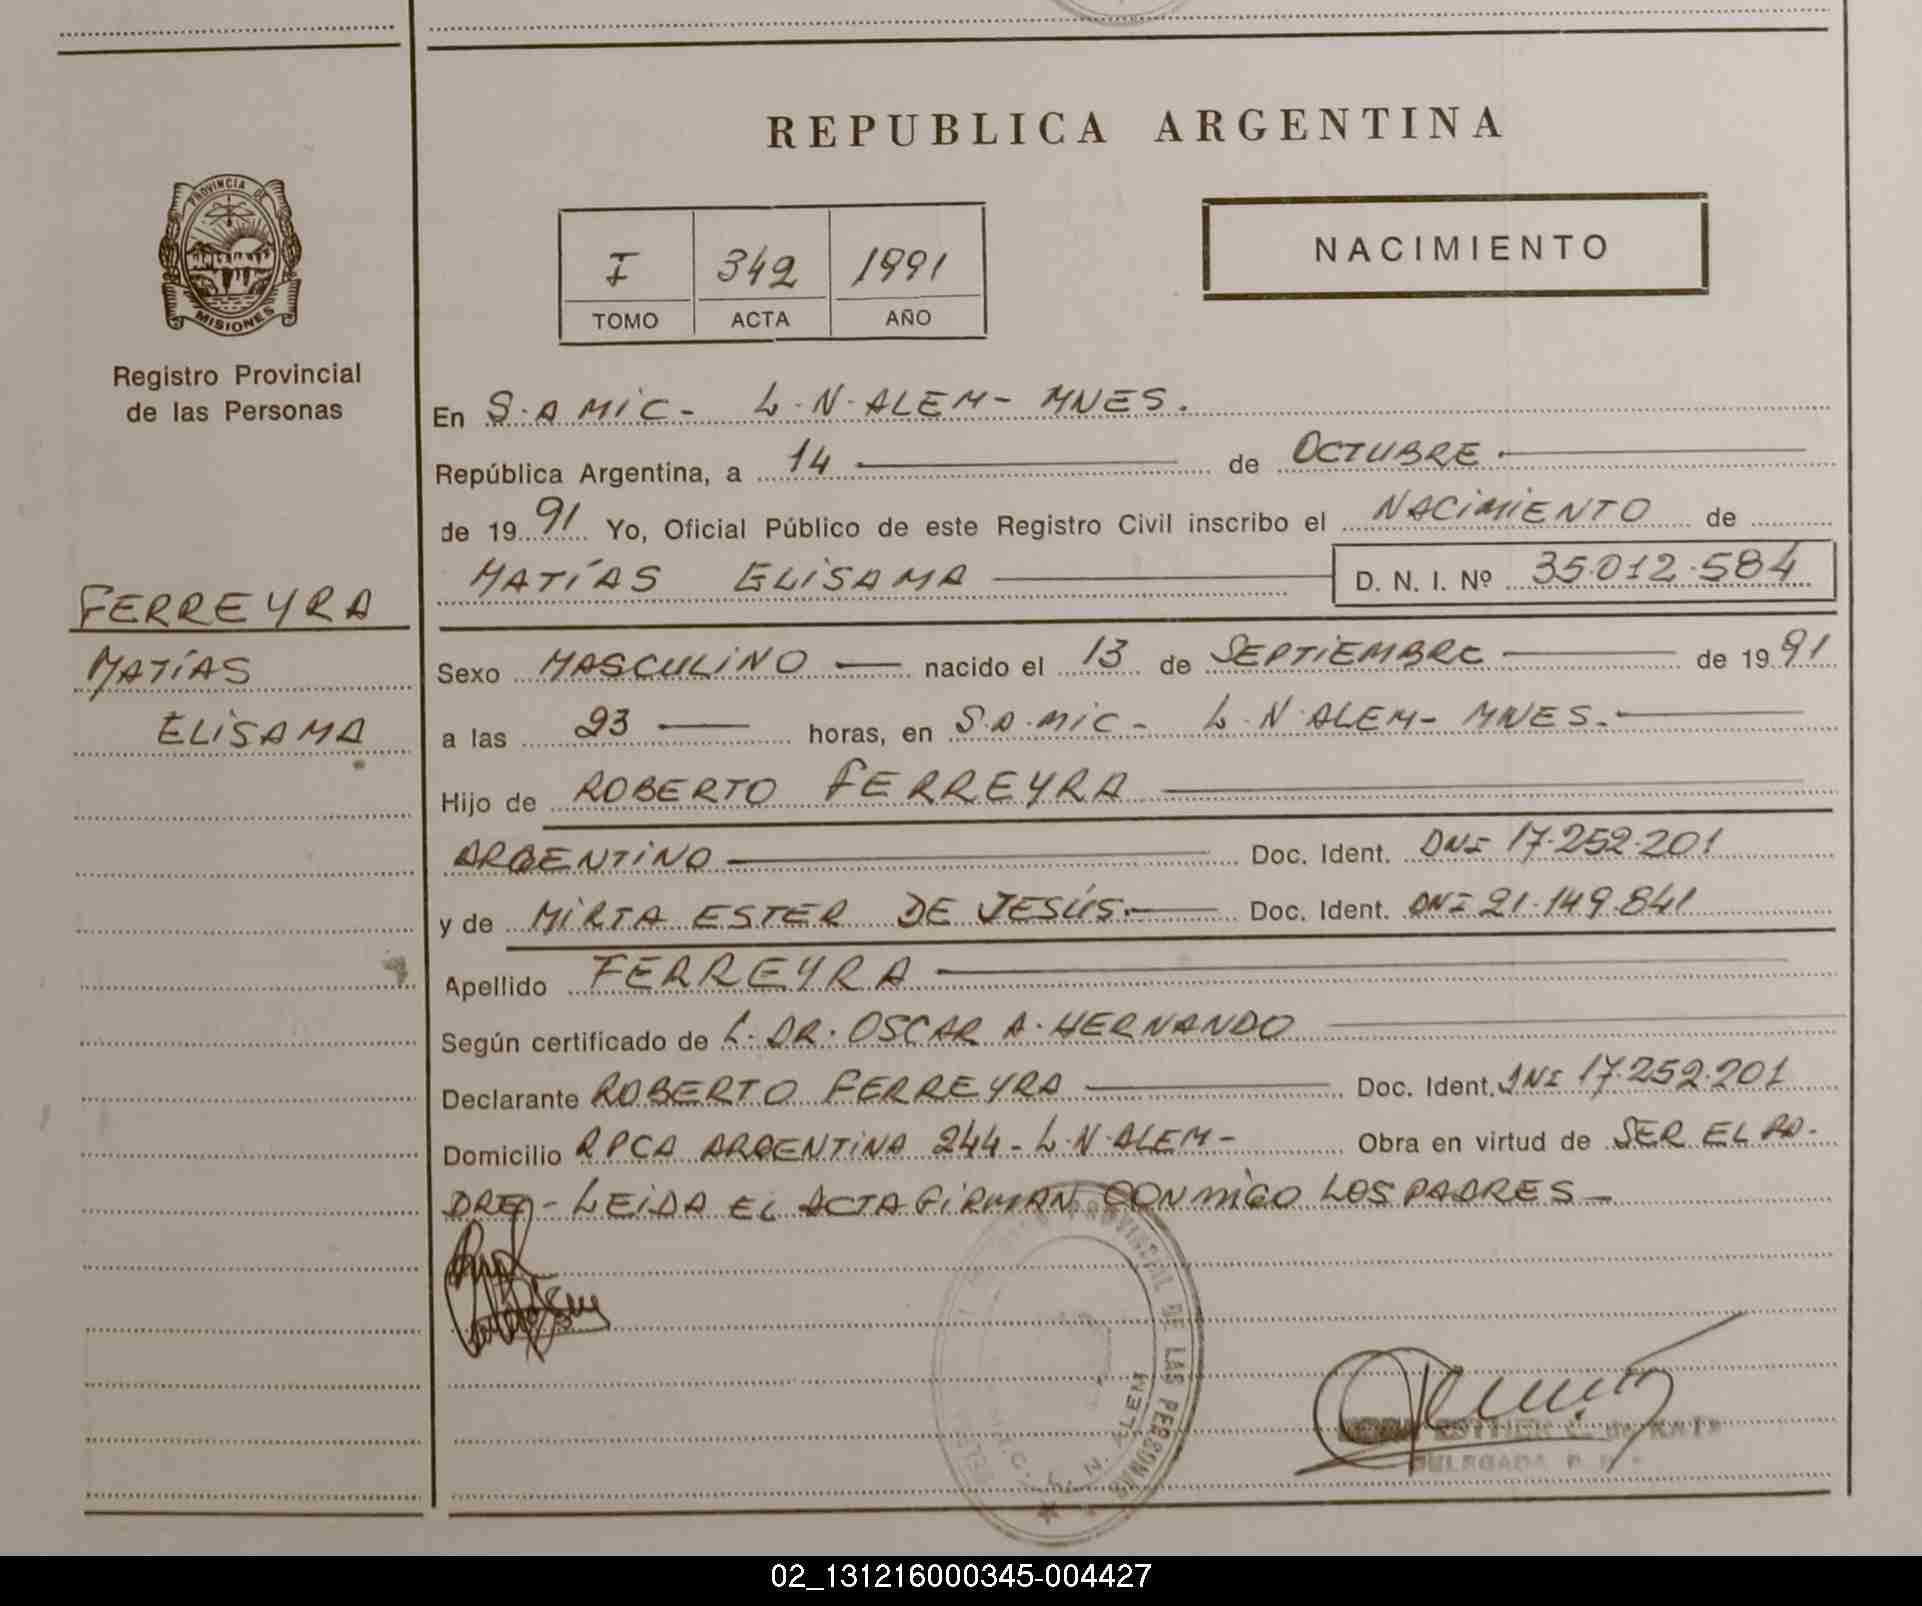 REPUBLICA ARGENTINA
PROVINCIA DE
MISIONES
Registro Provincial
de las Personas
FERREYRA
MATÍAS
ELISAMA
I 342 1991
TOMO ACTA AÑO
NACIMIENTO
En S.A MIC - L.N.ALEM - MNES.
República Argentina, a 14 de OCTUBRE
de 19 91 Yo, Oficial Público de este Registro Civil inscribo el NACIMIENTO de
MATÍAS ELISAMA D. N. I. Nº 35.012.584
Sexo MASCULINO nacido el 13 de SEPTIEMBRE de 19 91
a las 23 horas, en S.A.MIC - L.N.ALEM - MNES.
Hijo de ROBERTO FERREYRA
ARGENTINO Doc. Ident. DNI 17.252.201
y de MIRTA ESTER DE JESÚS. Doc. Ident. DNI 21.149.841
Apellido FERREYRA
Según certificado de L. DR. OSCAR A. HERNANDO
Declarante ROBERTO FERREYRA Doc. Ident. DNI 17.252.201
Domicilio RPCA ARGENTINA 244 - L.N.ALEM - Obra en virtud de SER EL PA-
DRE - LEIDA EL ACTA FIRMAN CONMIGO LOS PADRES -
PROVINCIAL DE LAS PERSONAS
L. N. ALEM
02_131216000345-004427